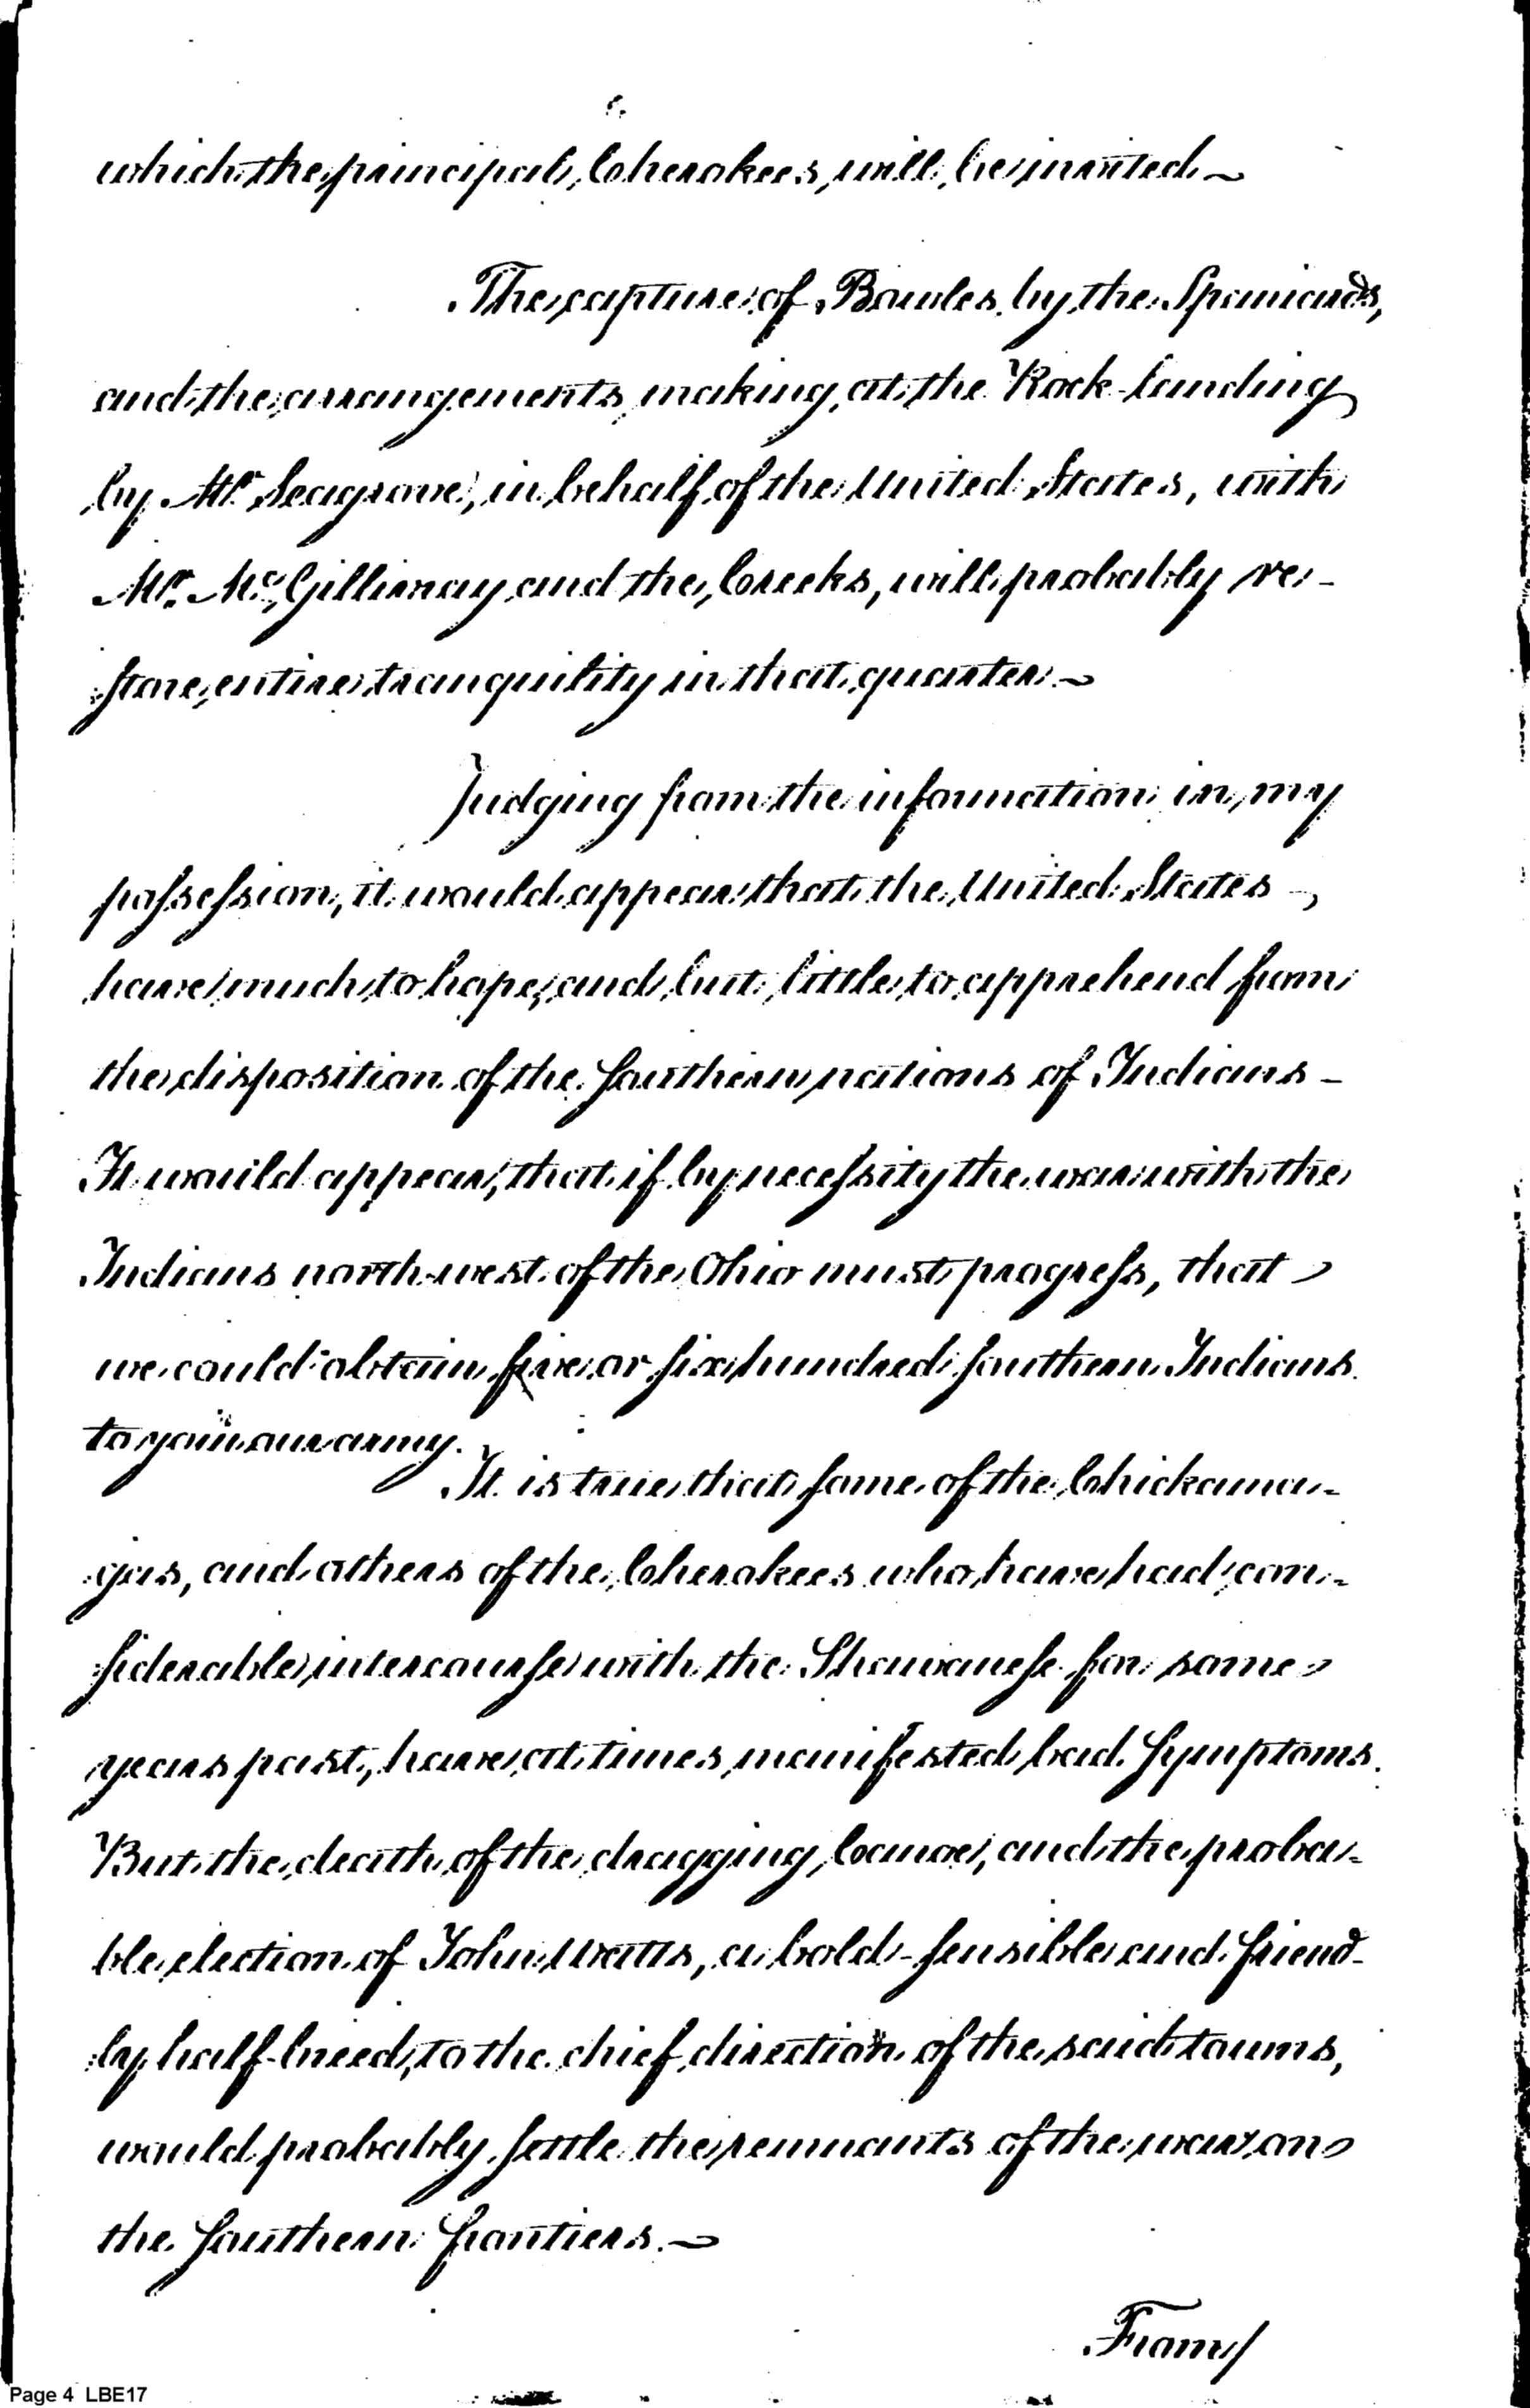 6.
which the principal Cherokees, will be invited ~
The capture of Bowles by the Spaniards,
and the arrangements making at the Rock-landing
by Mr. Seagrove, in behalf of the United States, with
Mr. Mc.Gillivray and the Creeks, will probably re-
store entire tranquility in that quarter. ~
Judging from the information in my
possession, it would appear that the United States -
have much to hope, and but little to apprehend from
the disposition of the southern nations of Indians -
It would appear, that if by necessity the war with the
Indians north-west of the Ohio must progress, that
we could obtain five or six hundred southern Indians
to join our army.
It is true that some of the Chickama-
gas, and others of the Cherokees who have had con-
siderable intercourse with the Shawanese for some
years past, have at times manifested bad symptoms.
But the death of the dragging Canoe, and the proba-
ble election of John Watts, a bold-sensible and friend-
ly half-breed, to the chief direction of the said towns,
would probably settle the remnants of the war on
the southern frontiers. ~
From/
Page 4 LBE17